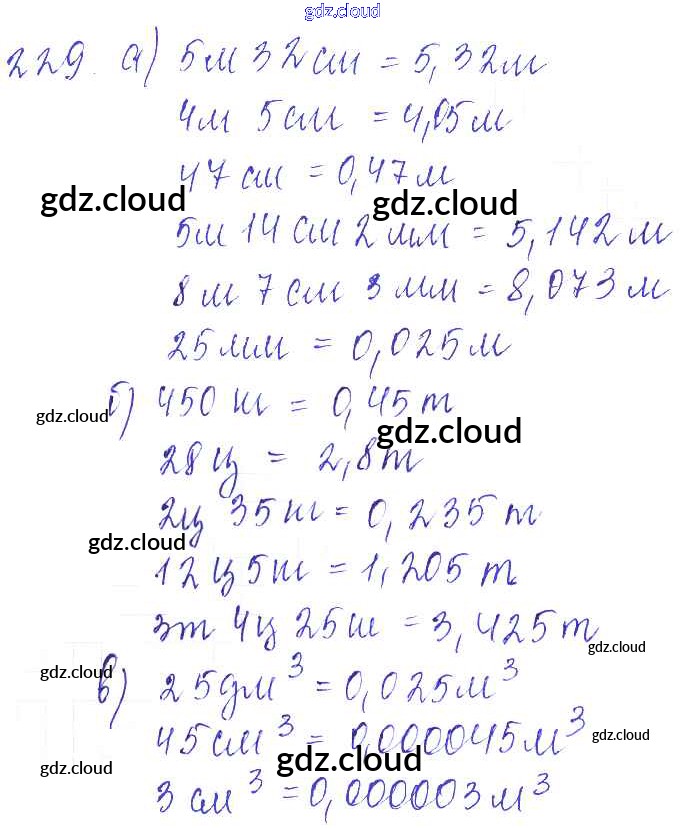 gdz.cloud
229. а) 5м 32см = 5,32м
4м 5см = 4,05м
47см = 0,47м
gdz.cloud gdz.cloud
5м 14см 2мм = 5,142м
8м 7см 3мм = 8,073м
25мм = 0,025м
б) 450 кг = 0,45т
gdz.cloud gdz.cloud
28ц = 2,8т
2ц 35кг = 0,235т
gdz.cloud
12ц 5кг = 1,205т
3т 4ц 25кг = 3,425т
gdz.cloud gdz.cloud
в) 25дм³ = 0,025м³
45см³ = 0,000045м³
gdz.cloud gdz.cloud gdz.cloud
3см³ = 0,000003м³